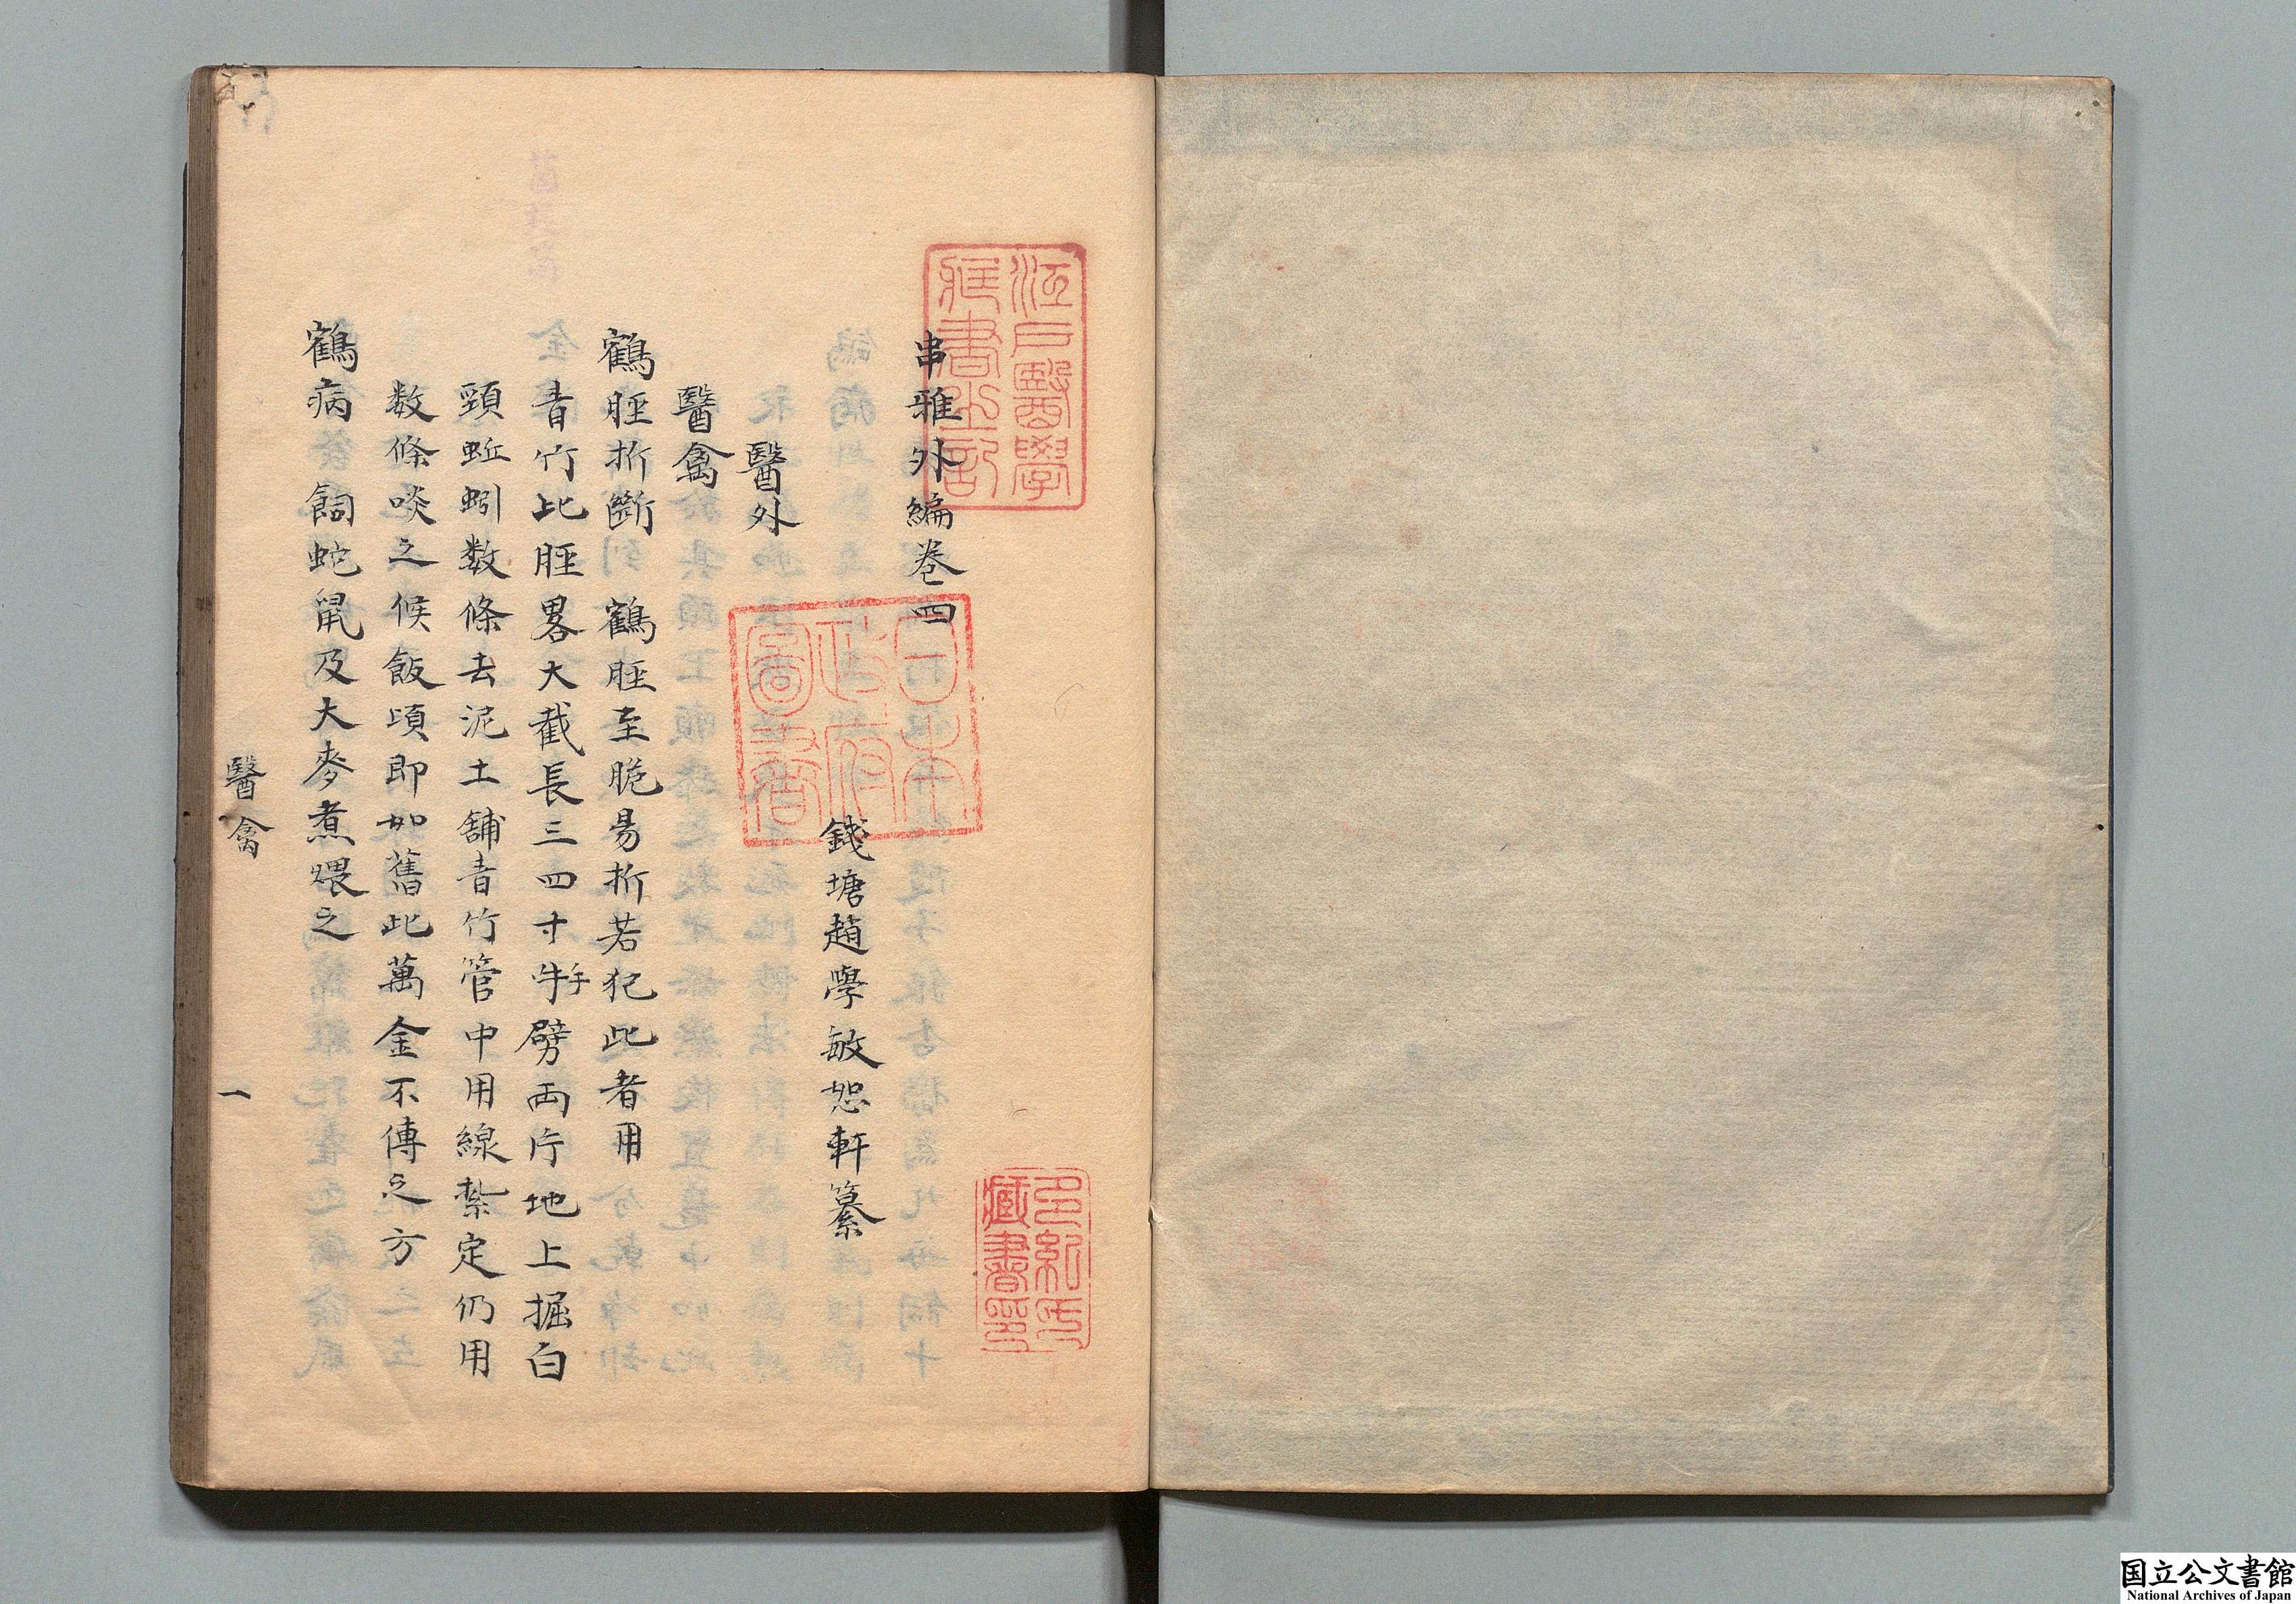 串雅外編卷四
錢塘趙學敏恕軒纂
醫外
醫禽
鶴脛折斷 鶴脛至脆易折若犯此者用
青竹比脛畧大截長三四寸牛手劈両片地上掘白
頸蚯蚓数條去泥土舖青竹管中用線紮定仍用
数條啖之候飯頃即如舊此萬金不傳之方
鶴病 飼蛇鼠及大麥煮煨之
醫禽
一
江戸醫學
蔵書之記
日本
政府
圖書
多紀氏
藏書印
国立公文書館
National Archives of Japan